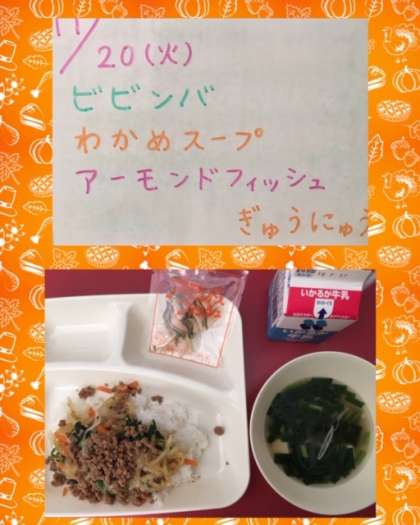 11/20(火)
ビビンバ
わかめスープ
アーモンドフィッシュ
ぎゅうにゅう
いかるが牛乳
いかるが牛乳